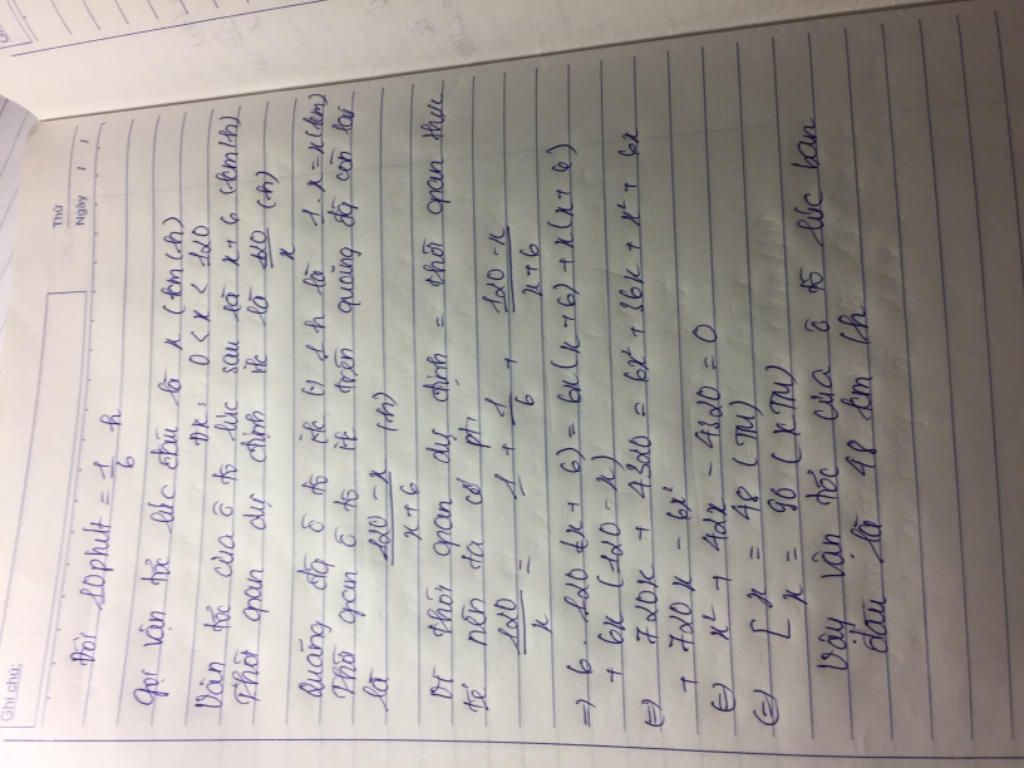 Ghi chú:
Thứ
Ngày / /
Đổi 10phút = 1/6 h
Gọi vận tốc lúc đầu là x (km/h)
ĐK: 0 < x < 120
Vận tốc của ô tô lúc sau là x + 6 (km/h)
Thời gian dự định đi là 120/x (h)
Quãng đg ô tô đi đc 1h là 1.x = x (km)
Thời gian ô tô đi trên quãng đg còn lại
là (120 - x)/(x + 6) (h)
Vì thời gian dự định = thời gian thực
tế nên ta có pt:
120/x = 1 + 1/6 + (120 - x)/(x + 6)
=> 6 . 120 (x + 6) = 6x(x + 6) + x(x + 6)
+ 6x (120 - x)
(=) 720x + 4320 = 6x² + 36x + x² + 6x
+ 720x - 6x²
(=) x² + 42x - 4320 = 0
(=) [ x = 48 (TM)
x = 90 (KTM)
Vậy vận tốc của ô tô lúc ban
đầu là 48 km/h